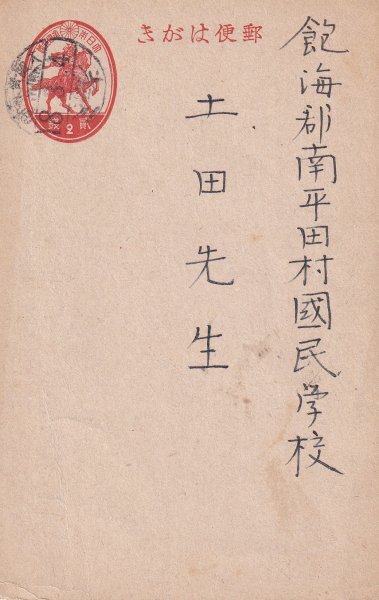 飽海郡南平田村國民学校
土田先生
郵便はがき
大日本
2